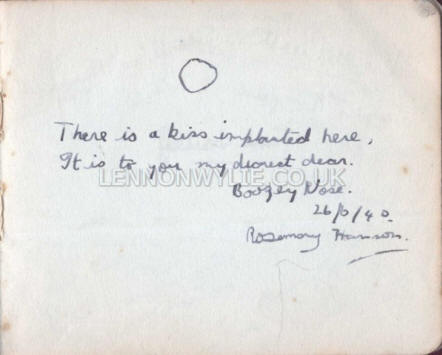 There is a kiss implanted here,
It is to you my dearest dear.
LENNONWYLIE.CO.UK
Boozey Nose.
26/5/40.
Rosemary Harrison.